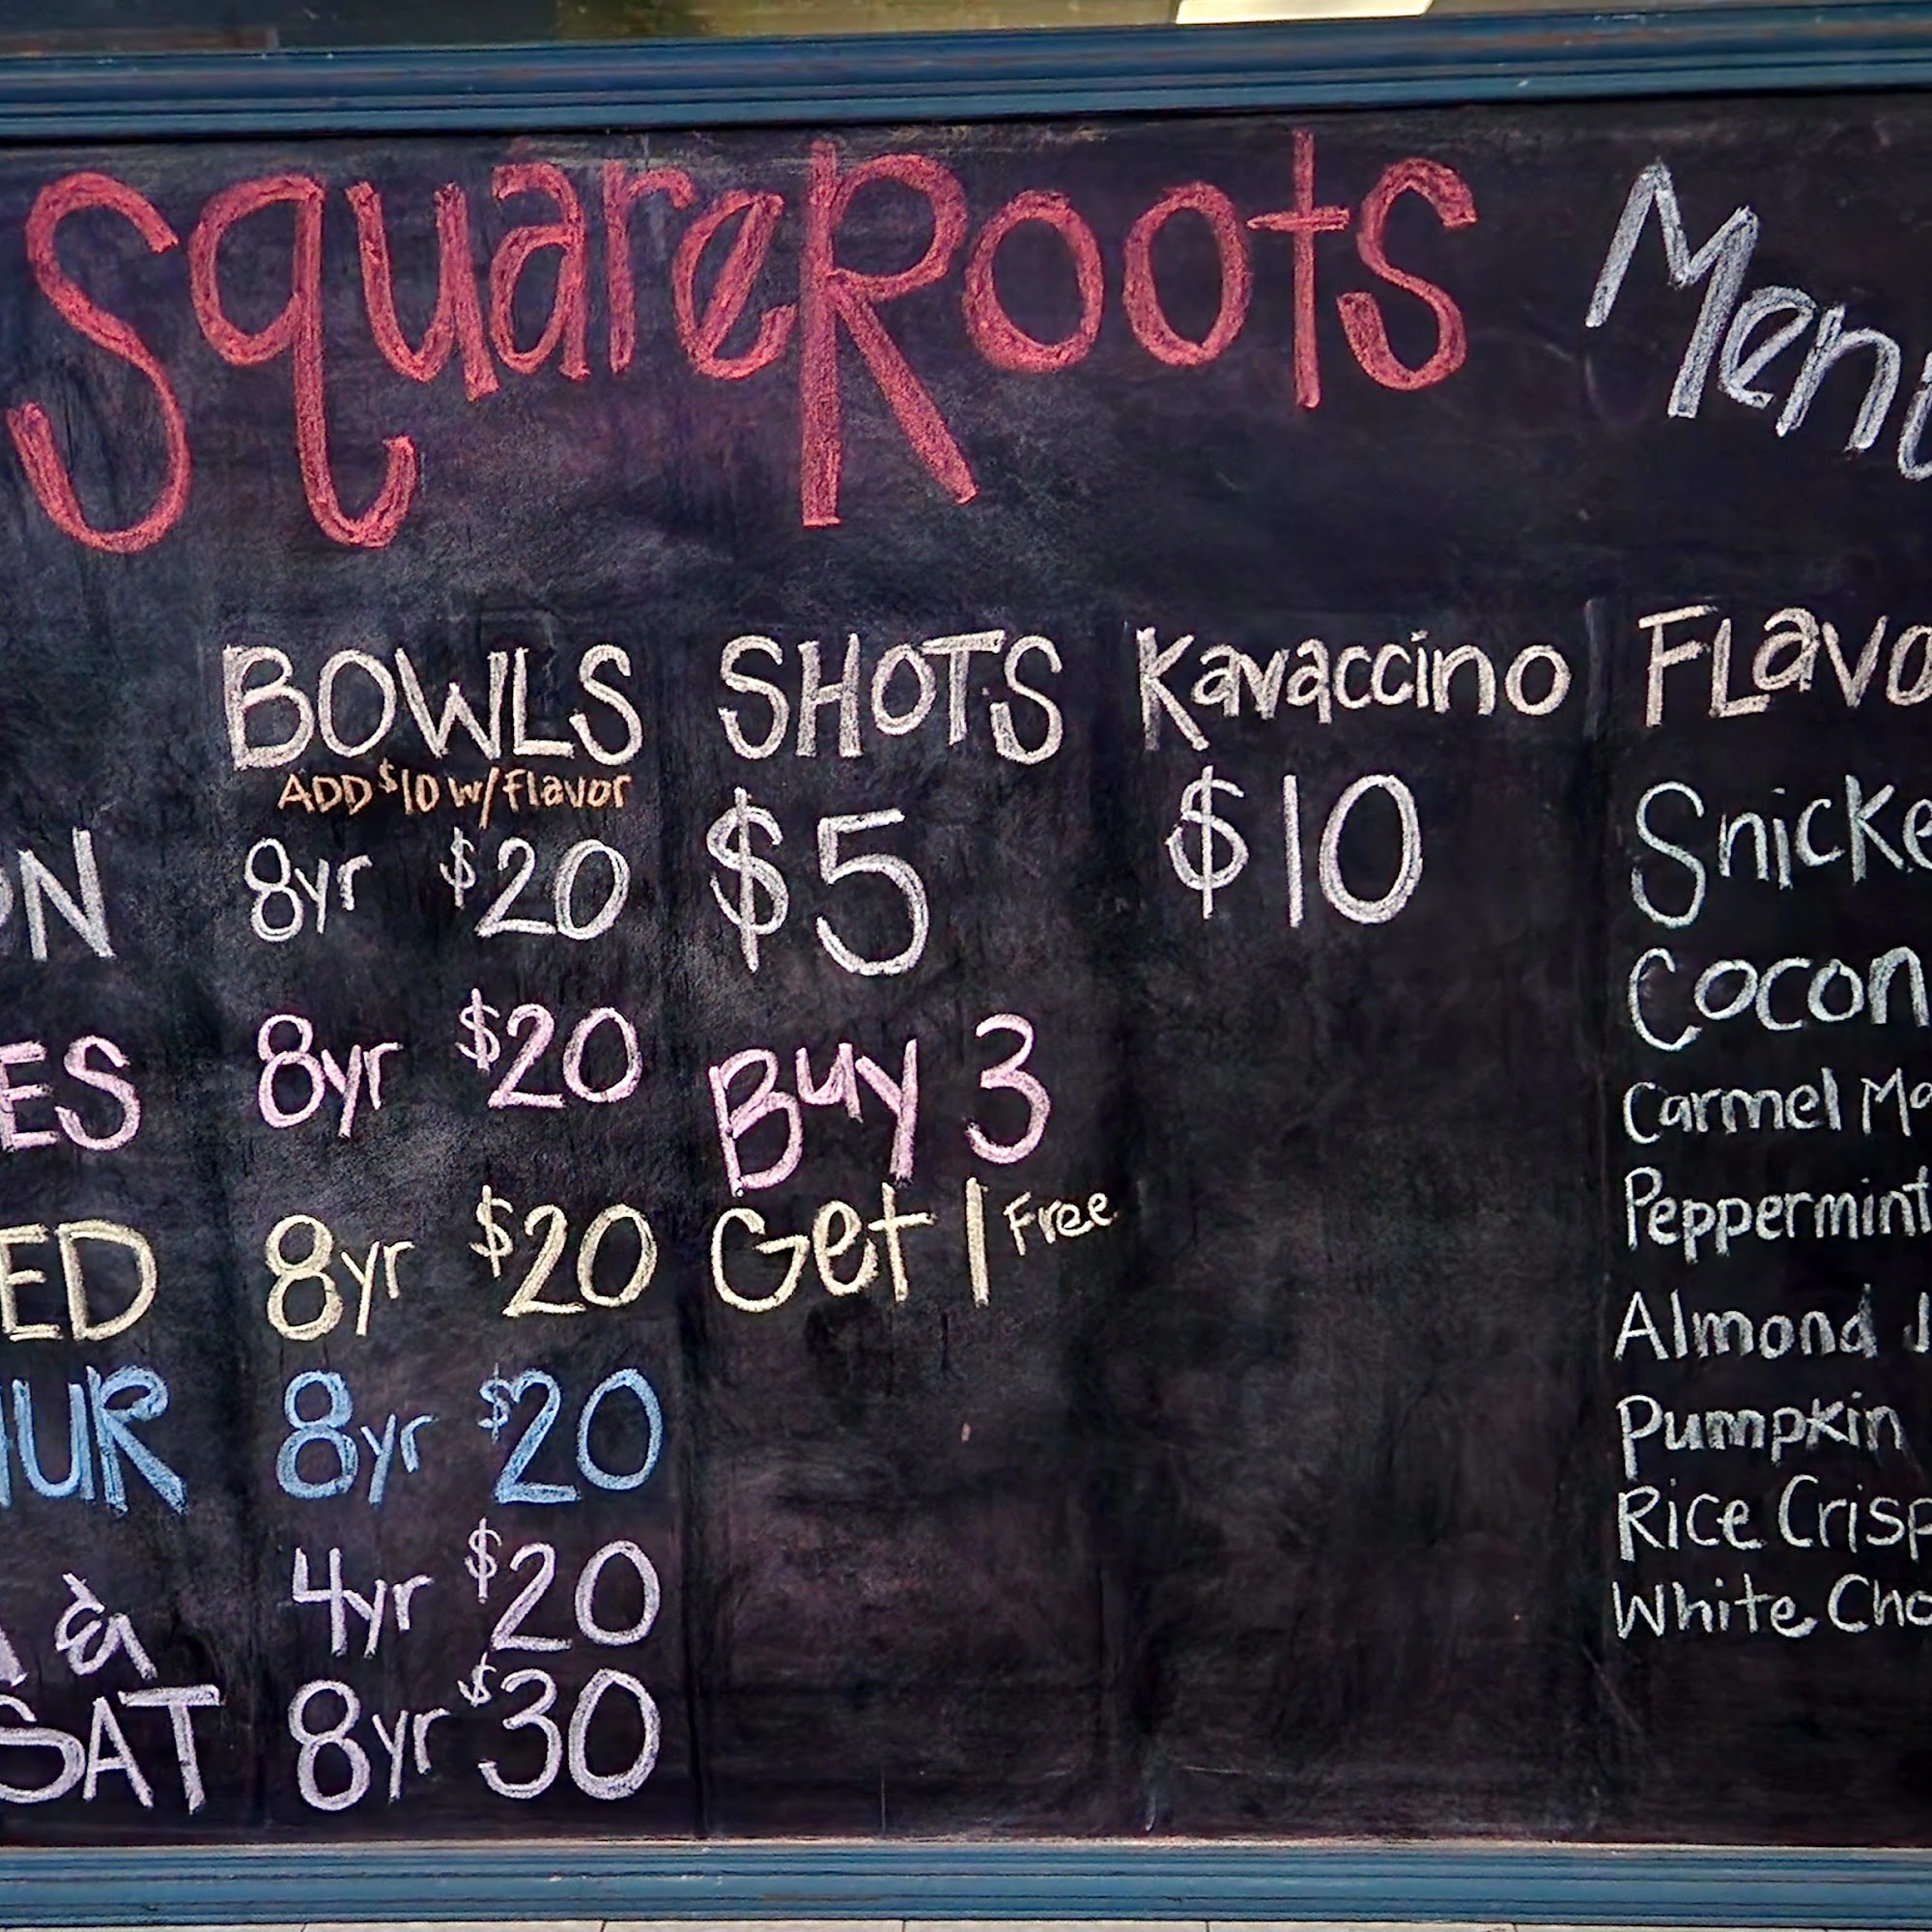 SquareRoots Menu
BOWLS SHOTS Kavaccino Flavo
ADD $10 w/ Flavor
ON 8yr $20 $5 $10
ES 8yr $20 Buy 3
ED 8yr $20 Get 1 Free
HUR 8yr $20
& 4yr $20
SAT 8yr $30
Snicke
Cocon
Carmel Ma
Peppermint
Almond J
Pumpkin
Rice Crisp
White Cho